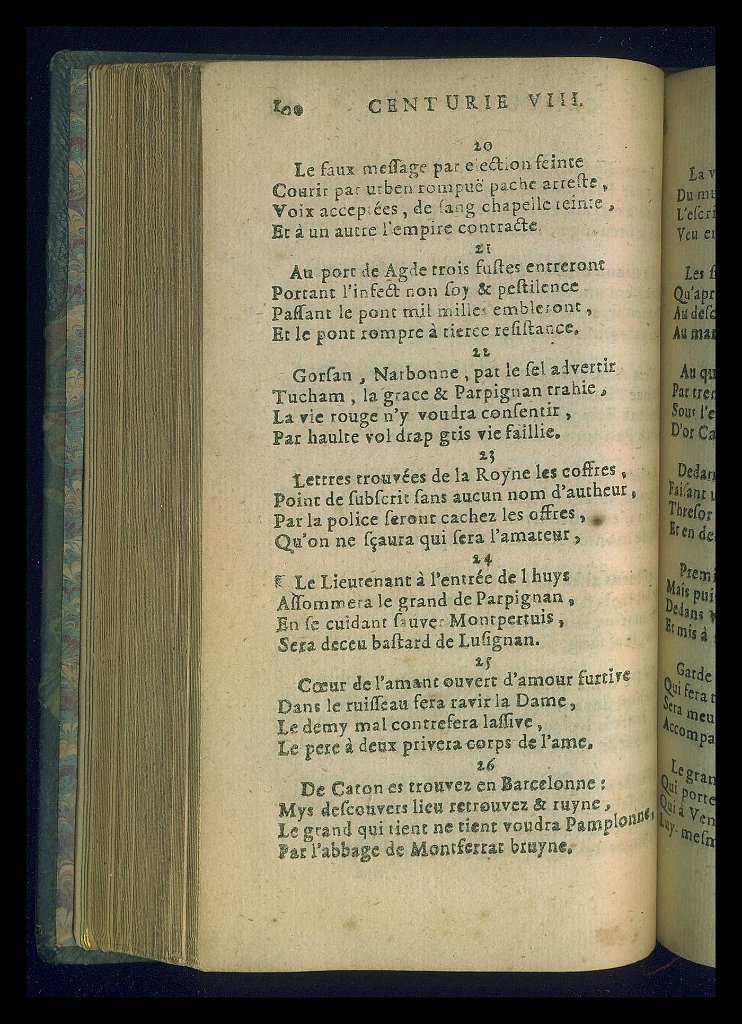 100 CENTURIE VIII.
20
Le faux meſſage par election feinte
Courir par urben rompuë pache arreſte,
Voix acceptées, de ſang chapelle teinte,
Et à un autre l'empire contracte.
21
Au port de Agde trois fuſtes entreront
Portant l'infect non foy & peſtilence
Paſſant le pont mil milles embleront,
Et le pont rompre à tierce reſiſtance.
22
Gorſan, Narbonne, par le ſel advertir
Tucham, la grace & Parpignan trahie,
La vie rouge n'y voudra conſentir,
Par haulte vol drap gris vie faillie.
23
Lettres trouvées de la Royne les coffres,
Point de ſubſcrit ſans aucun nom d'autheur,
Par la police ſeront cachez les offres,
Qu'on ne ſçaura qui ſera l'amateur,
24
Le Lieutenant à l'entrée de l huys
Aſſommera le grand de Parpignan,
En ſe cuidant ſauver Montpertuis,
Sera deceu baſtard de Luſignan.
25
Cœur de l'amant ouvert d'amour furtive
Dans le ruiſſeau fera ravir la Dame,
Le demy mal contrefera laſſive,
Le pere à deux privera corps de l'ame.
26
De Caton es trouvez en Barcelonne:
Mys deſcouvers lieu retrouvez & ruyne,
Le grand qui tient ne tient voudra Pamplonne,
Par l'abbage de Montferrat bruyne.
La v
Du mu
L'eſcri
Veu e
Les f
Qu'apr
Au deſc
Au mar
Au qu
Par trec
Sous l'e
D'or Ca
Dedan
Faiſant
Threſor
Et en de
Premi
Mais pui
Dedans
Et mis à
Garde
Qui ſera
Sera meu
Accompa
Le gran
Qui porte
Qui à Ven
Luy-meſm